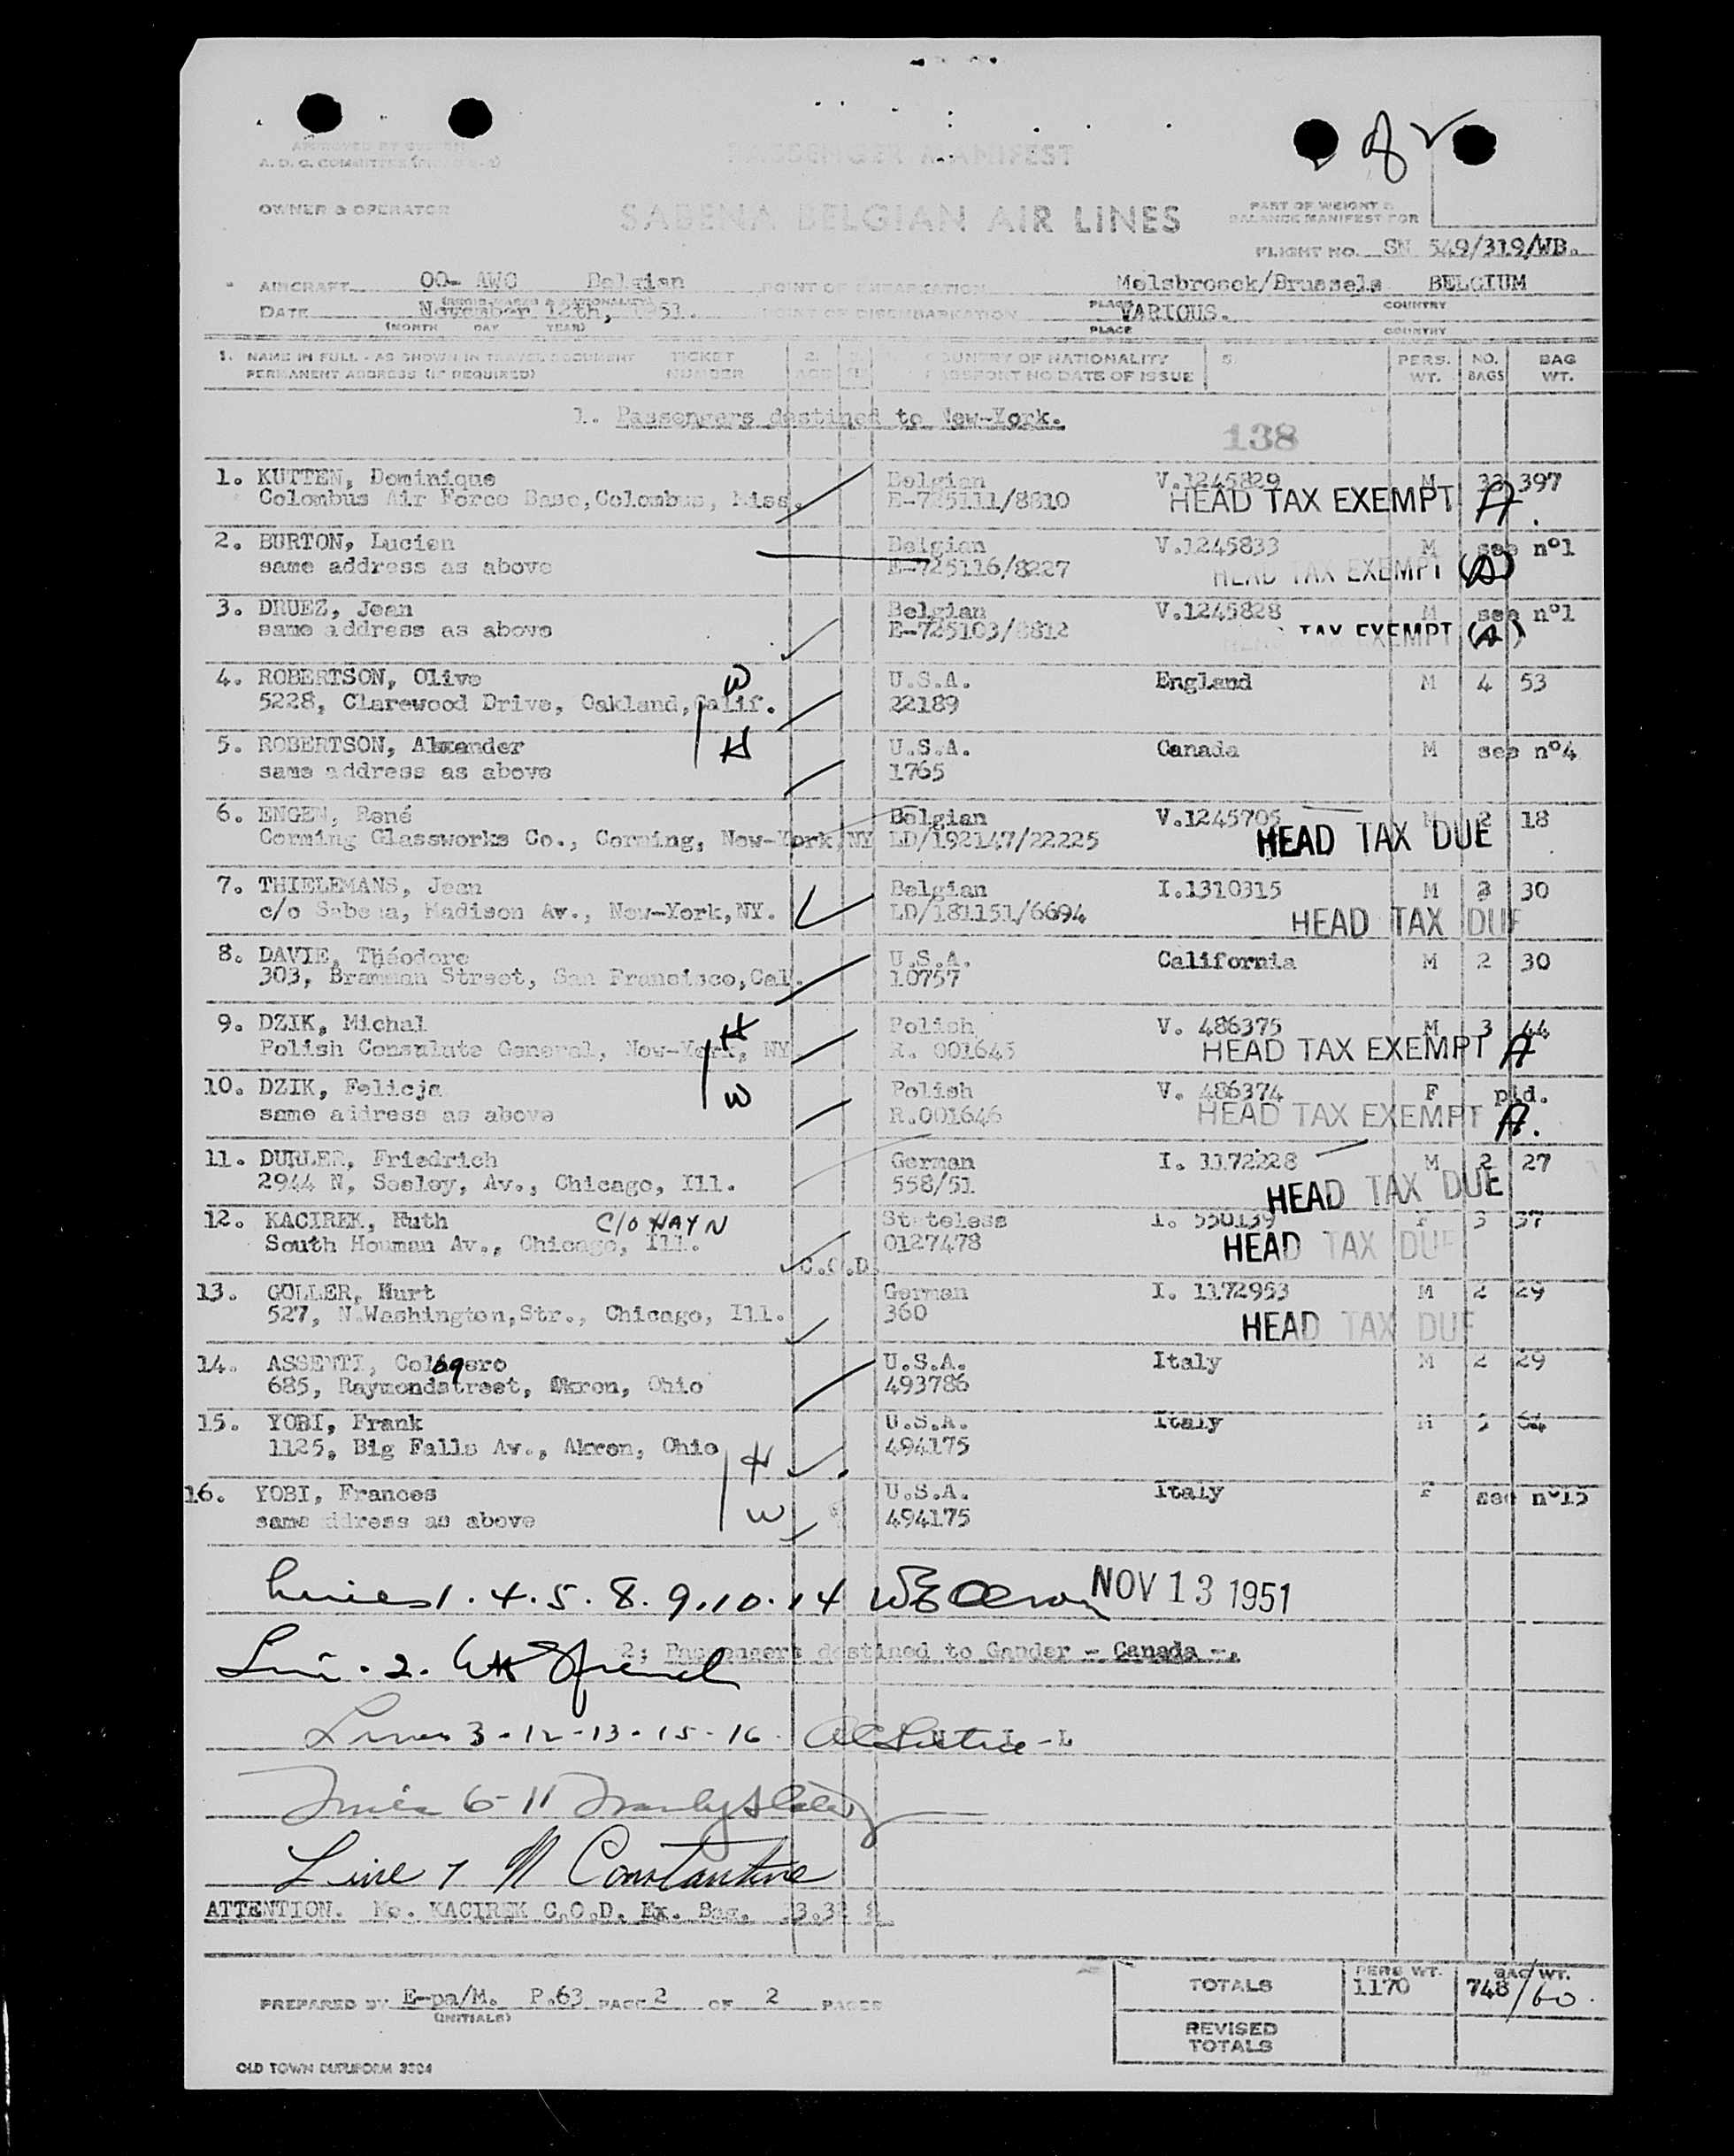 APPROVED BY
A.D.C. COMMITTEE
PASSENGER MANIFEST
OWNER & OPERATOR
SABENA BELGIAN AIR LINES
PART OF WEIGHT &
BALANCE MANIFEST FOR
FLIGHT NO. SN 549/319/WB.
AIRCRAFT OO- AWC Belgian POINT OF EMBARCATION Melsbroeck/Brussels BELGIUM
PLACE COUNTRY
DATE November 12th, 1951. POINT OF DISEMBARKATION VARIOUS.
(MONTH DAY YEAR) PLACE COUNTRY
1. NAME IN FULL - AS SHOWN IN TRAVEL DOCUMENT TICKET 2. COUNTRY OF NATIONALITY 5 PERS. NO. BAG
PERMANENT ADDRESS (IF REQUIRED) NUMBER AGE PASSPORT NO DATE OF ISSUE WT. BAGS WT.
1. Passengers destined to New-York.
138
1. KUTTEN, Dominique Belgian V.1245829 M 397
Colombus Air Force Base, Colombus, Miss. E-725111/8810 HEAD TAX EXEMPT A.
2. BURTON, Lucien Belgian V.1245833 M see n°1
same address as above E-725116/8227 HEAD TAX EXEMPT (A)
3. DRUEZ, Jean Belgian V.1245828 M see n°1
same address as above E-725103/8812 HEAD TAX EXEMPT (A)
4. ROBERTSON, Olive W U.S.A. England M 4 53
5228, Clarewood Drive, Oakland, Calif. 22189
5. ROBERTSON, Alexander H U.S.A. Canada M see n°4
same address as above 1765
6. ENGEN, René Belgian V.1245705 M 2 18
Corning Glassworks Co., Corning, New-York, NY LD/192147/22225 HEAD TAX DUE
7. THIELEMANS, Jean Belgian I.1310315 M 3 30
c/o Sabena, Madison Av., New-York, NY. LD/181151/6694 HEAD TAX DUE
8. DAVIE, Théodore U.S.A. California M 2 30
303, Bramman Street, San Francisco, Cal. 10757
9. DZIK, Michal H Polish V. 486375 M 3 44
Polish Consulate General, New-York, NY R. 001645 HEAD TAX EXEMPT A
10. DZIK, Felicja W Polish V. 486374 F pld.
same address as above R.001646 HEAD TAX EXEMPT A.
11. DURLER, Friedrich German I. 1172228 M 2 27
2944 N, Seeley, Av., Chicago, Ill. 558/51 HEAD TAX DUE
12. KACIREK, Ruth C/O HAYN Stateless I. 550139 F 3 37
South Houman Av., Chicago, Ill. 0127478 HEAD TAX DUE
C.O.D.
13. GOLLER, Kurt German I. 1172953 M 2 29
527, N.Washington,Str., Chicago, Ill. 360 HEAD TAX DUE
14. ASSENTI, Calogero U.S.A. Italy M 2 29
685, Raymondstreet, Akron, Ohio 493786
15. YOBI, Frank U.S.A. Italy M 3 64
1125, Big Falls Av., Akron, Ohio H 494175
16. YOBI, Frances U.S.A. Italy F see n°15
same address as above W 494175
Lines 1.4.5.8.9.10.14 NOV 13 1951
2; Passengers destined to Gander - Canada -.
Line. 2.
Lines 3-12-13-15-16.
N I L
Lines 6-11
Line 7 N Constantine
ATTENTION. KACIREK C.O.D. Ex. Bag.
TOTALS PERS WT. 1170 BAG WT. 748/60.
PREPARED BY E-pa/M. P.63 PAGE 2 OF 2 PAGES
(INITIALS)
REVISED
TOTALS
OLD TOWN DUPLIFORM 3304